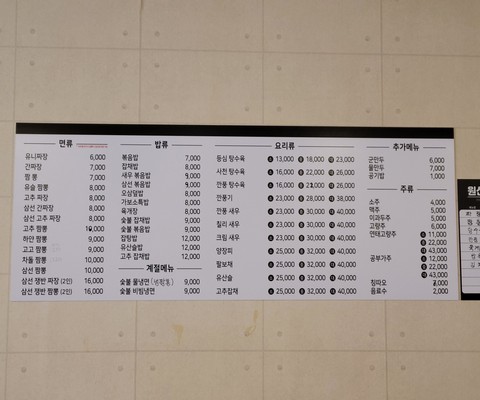 면류
유니짜장 6,000
간짜장 7,000
짬 뽕 7,000
유슬 짬뽕 8,000
고추 짜장 8,000
삼선 간짜장 8,000
삼선 고추 짜장 8,000
고추 짬뽕
하얀 짬뽕 9,000
고고 짬뽕 9,000
차돌 짬뽕 10,000
삼선 짬뽕 10,000
삼선 쟁반 짜장 (2인) 16,000
삼선 쟁반 짬뽕 (2인) 16,000
밥류
볶음밥 7,000
잡채밥 8,000
새우 볶음밥 9,000
삼선 볶음밥 9,000
오삼덮밥 8,000
가보소특밥 8,000
육개장 8,000
숯불 잡채밥 9,000
숯불 볶음밥 9,000
잡탕밥 12,000
유산슬밥 12,000
고추 잡채밥 12,000
계절메뉴
숯불 물냉면 9,000
숯불 비빔냉면 9,000
요리류
등심 탕수육 소 13,000 중 18,000 대 23,000
사천 탕수육 소 16,000 중 22,000 대 26,000
깐풍 탕수육 소 16,000 중 대 26,000
깐풍기 소 23,000 중 28,000 대 38,000
깐풍 새우 소 23,000 중 30,000 대 40,000
칠리 새우 소 23,000 중 30,000 대 40,000
크림 새우 소 23,000 중 30,000 대 40,000
양장피 소 25,000 중 32,000 대 40,000
팔보채 소 25,000 중 32,000 대 40,000
유산슬 소 25,000 중 32,000 대 40,000
고추잡채 소 25,000 중 32,000 대 40,000
추가메뉴
군만두 6,000
물만두 7,000
공기밥 1,000
주류
소주 4,000
맥주 5,000
이과두주 5,000
고량주 6,000
연태고량주 소 11,000
중 22,000
대 43,000
공부가주 소 12,000
중 22,000
대 43,000
칭따오
음료수 2,000
원산